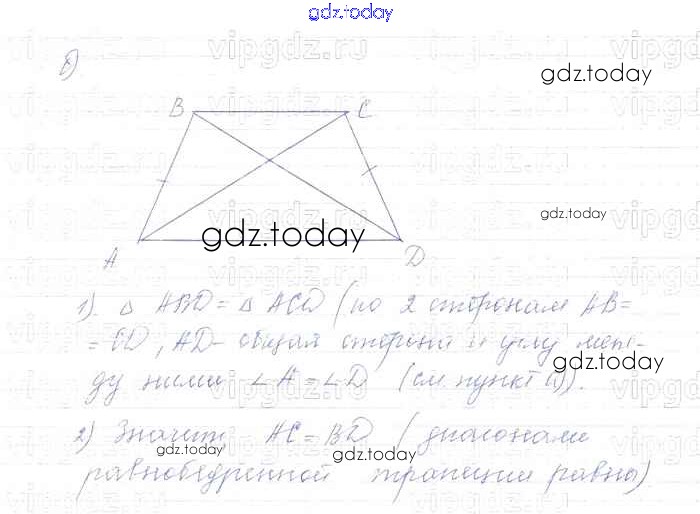 gdz.today
vipgdz.ru
б)
gdz.today
B C
gdz.today
gdz.today
A D
1). △ ABD = △ ACD (по 2 сторонам AB =
= CD, AD - общая сторона и углу меж-
gdz.today
ду ними ∠A = ∠D (см. пункт а)).
2) Значит, AC = BD (диагонали
gdz.today
gdz.today
равнобедренной трапеции равны)